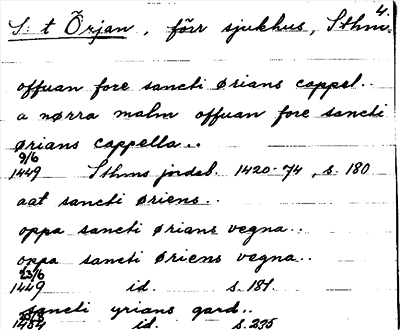 4.
S:t Örjan, förr sjukhus, Sthm.
offuan fore sancti ørians cappel..
a nørra malm offuan fore sancti
ørians cappella..
9/6
1449 Sthms jordeb. 1420-74, s. 180
aat sancti øriens..
oppa sancti ørians vegna..
oppa sancti øriens vegna..
23/6
1449 id. s. 181.
sancti yrians gard..
id. s. 235